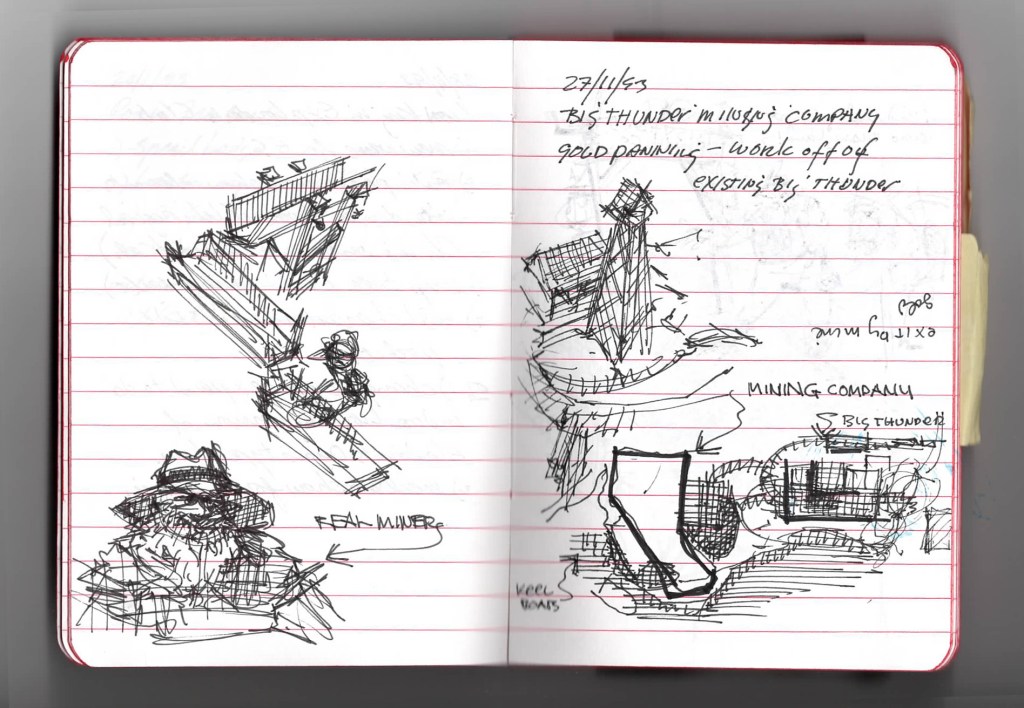 27/11/93
BIG THUNDER MINING COMPANY
GOLD PANNING – WORK OFF OF
EXISTING BIG THUNDER
gold
exit by mine
MINING COMPANY
BIG THUNDER
REAL MINERS
KEEL
BOATS